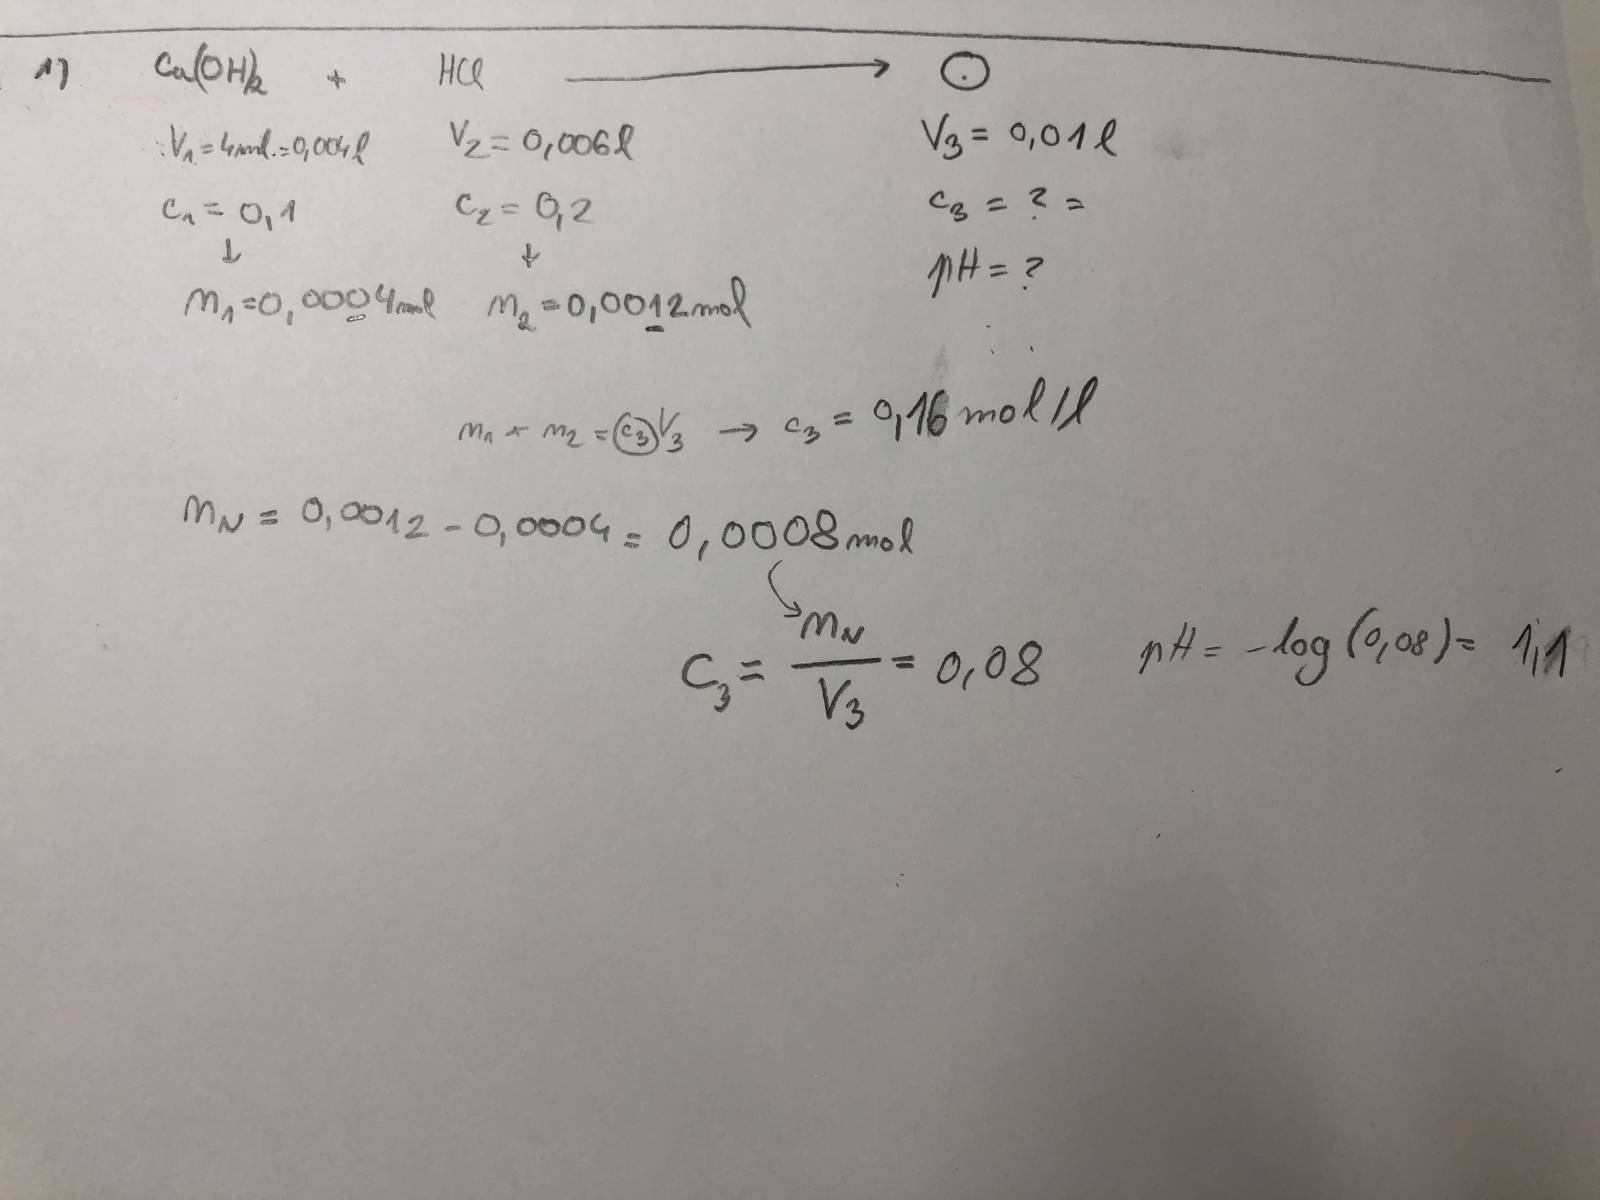 1) Ca(OH)2 + HCl → ⊙
V1 = 4ml = 0,004l V2 = 0,006l V3 = 0,01l
c1 = 0,1 c2 = 0,2 c3 = ? =
↓ ↓ pH = ?
n1 = 0,0004mol n2 = 0,0012mol
n1 + n2 = c3 V3 → c3 = 0,16 mol/l
nN = 0,0012 - 0,0004 = 0,0008mol
c3 = nN / V3 = 0,08 pH = -log(0,08) = 1,1